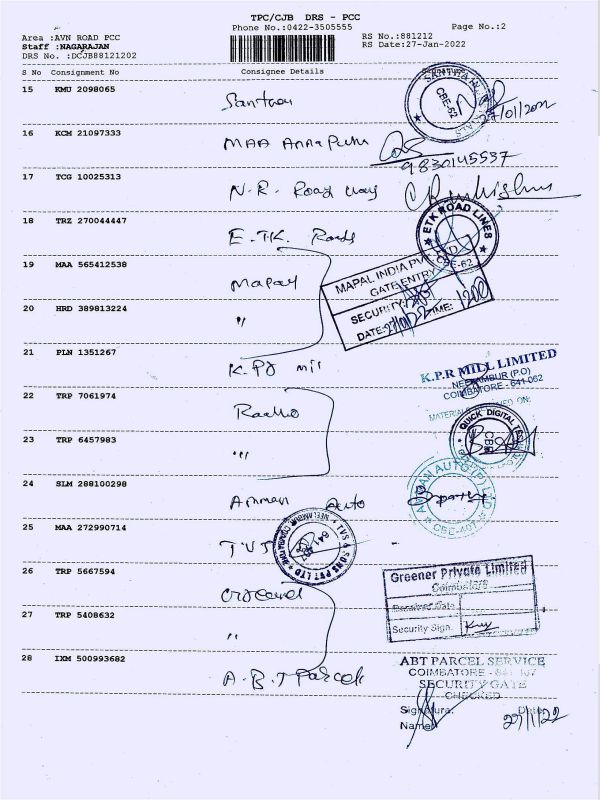 TPC/CJB DRS - PCC
Phone No.:0422-3505555
Page No.:2
Area :AVN ROAD PCC
Staff :NAGARAJAN
DRS No. :DCJB88121202
RS No.:881212
RS Date:27-Jan-2022
S No Consignment No Consignee Details
15 KMU 2098065
CBE-62
27/01/2022
16 KCM 21097333 MAA Anna
9830145537
17 TCG 10025313 N.R. Road ways
18 TRZ 270044447 E.T.K. Roads
ETK ROAD LINES
CBE-62
19 MAA 565412538 Mapal
MAPAL INDIA PVT
GATE ENTRY
SECURITY:
DATE:27/01/22 TIME: 1200
20 HRD 389813224 "
21 PLN 1351267 K.P.R mill
K.P.R MILL LIMITED
NEELAMBUR (P.O)
COIMBATORE - 641 062
22 TRP 7061974
QUICK DIGITAL
CBE
23 TRP 6457983 "
24 SLM 288100298 Amman Auto
AMMAN AUTO (P) LTD
CBE-407
25 MAA 272990714 TVS
& SONS PVT LTD
26 TRP 5667594
Greener Private Limited
Coimbatore
Receiver Date
Security Sign.
27 TRP 5408632 "
28 IXM 500993682 A.B.T Parcel
ABT PARCEL SERVICE
COIMBATORE - 641 107
SECURITY GATE
CHECKED
Signature: Date:
Name: 27/1/22